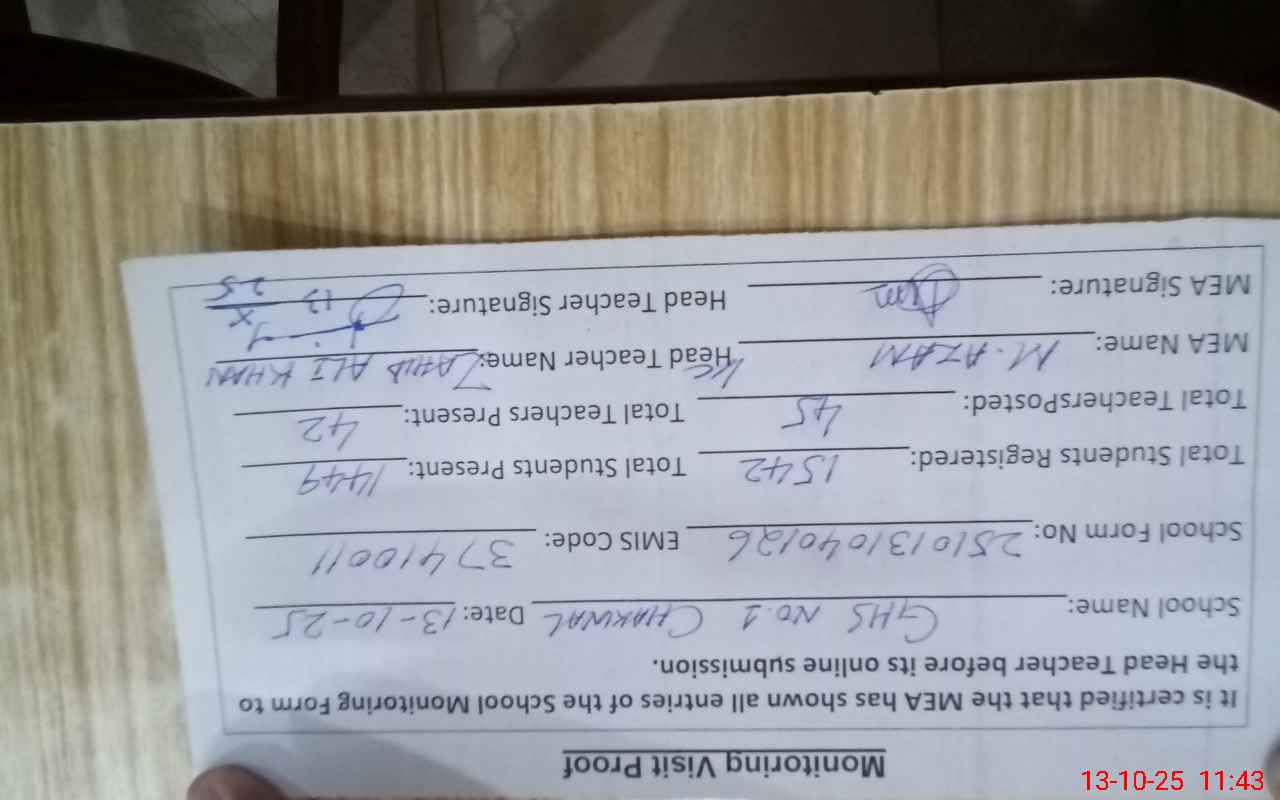 Monitoring Visit Proof
It is certified that the MEA has shown all entries of the School Monitoring Form to
the Head Teacher before its online submission.
School Name: GHS NO.1 CHAKWAL Date: 13-10-25
School Form No: 2510131040126 EMIS Code: 37410011
Total Students Registered: 1542 Total Students Present: 1449
Total TeachersPosted: 45 Total Teachers Present: 42
MEA Name: M. AZAM Head Teacher Name: ZAHID ALI KHAN
MEA Signature: Head Teacher Signature: 13 X 25
13-10-25 11:43